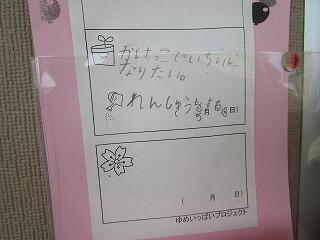 かけっこでいちいに
なりたい。
れんしゅうをする。
(5月18日)
(　月　日)
ゆめいっぱいプロジェクト